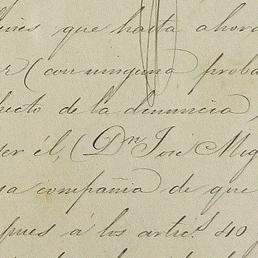 que hasta ahora
r (con ninguna proba
ecto de la denuncia,
ser él, (Dn José Mig
sa compañia de que
pues á los articˢ 40